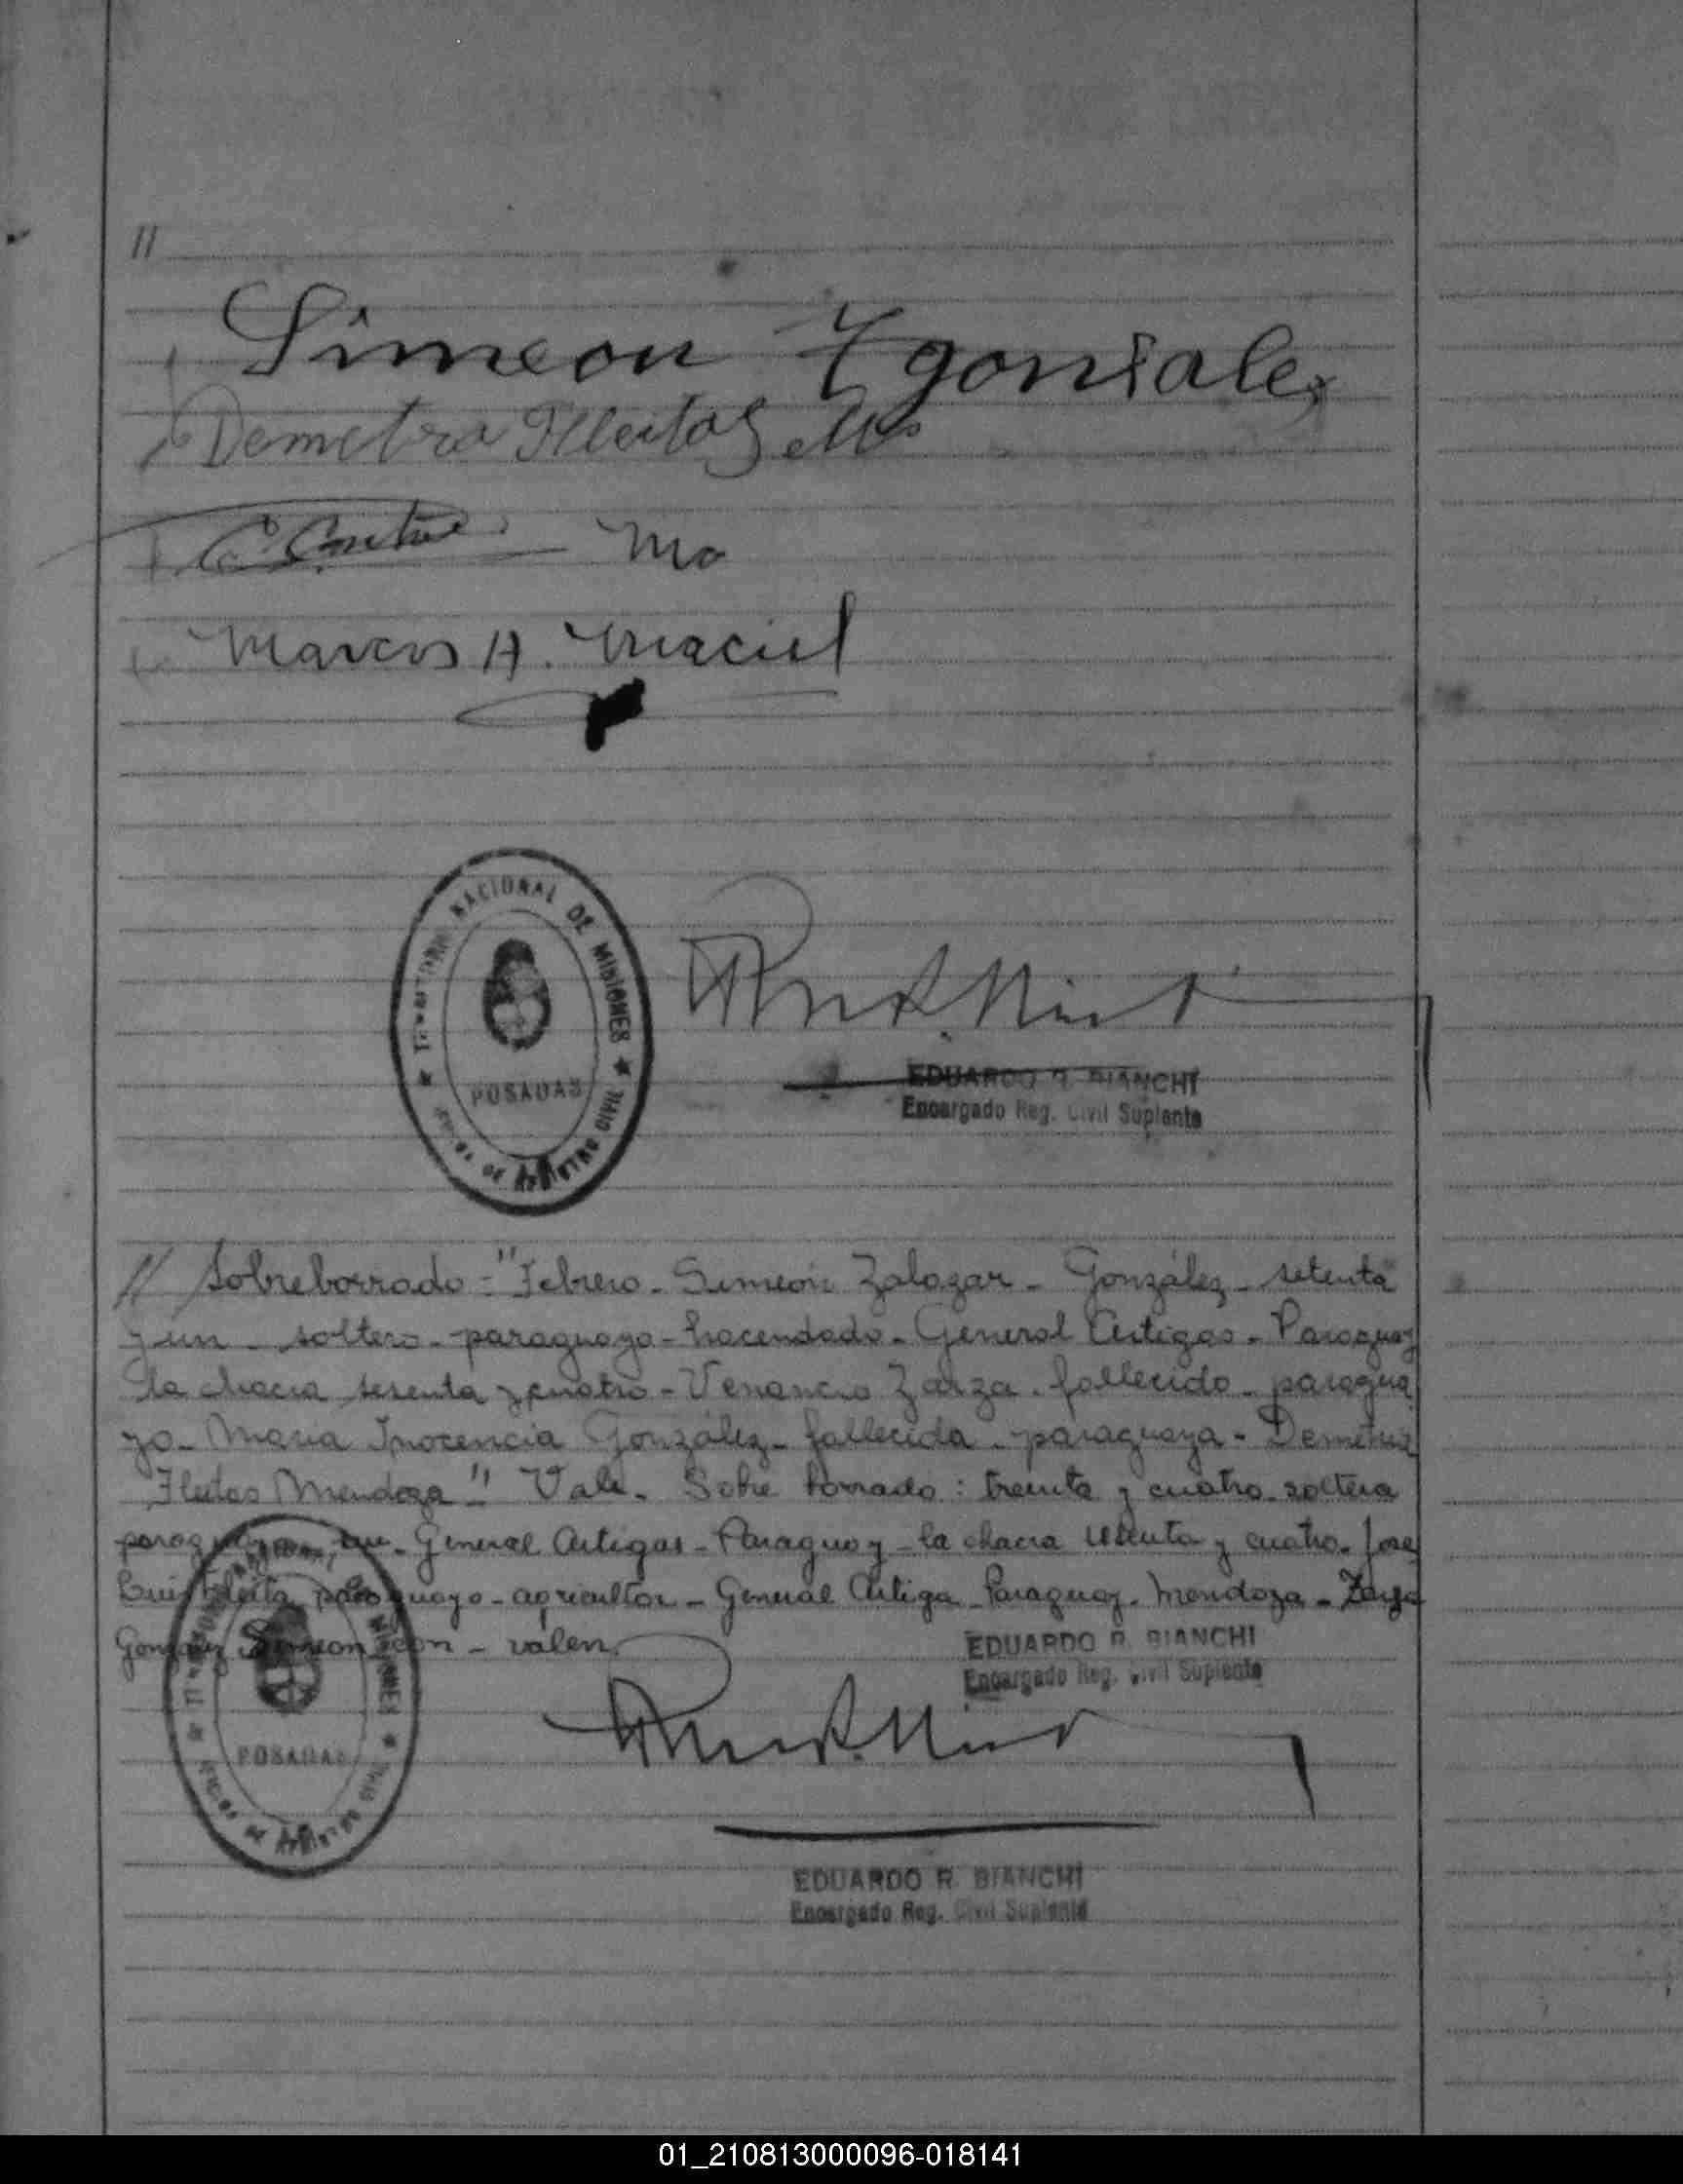 //
Simeon Z gonsales
Demetra Flleitas M
Mo
Marcos A. Maciel
TERRITORIO NACIONAL DE MISIONES
POSADAS
OFICINA DE REGISTRO CIVIL
EDUARDO R. BIANCHI
Encargado Reg. Civil Suplente
// Sobreborrado - "Febrero - Simeón Zalazar - González - setenta
y un - soltero - paraguayo - hacendado - General Artigas - Paraguay
la chacra sesenta y cuatro - Venancio Zarza - fallecido - paragua
yo - Maria Inocencia González - fallecida - paraguaya - Demetria
Fleitas Mendoza" Vale. Sobre borrado: treinta y cuatro - soltera
General Artigas - Paraguay - la chacra sesenta y cuatro - José
Luis Fleita paraguayo - agricultor - General Artiga - Paraguay - Mendoza - Zarza
Simeon - valen.
EDUARDO R. BIANCHI
Encargado Reg. Civil Suplente
TERRITORIO NACIONAL DE MISIONES
POSADAS
OFICINA DE REGISTRO CIVIL
EDUARDO R. BIANCHI
Encargado Reg. Civil Suplente
01_210813000096-018141